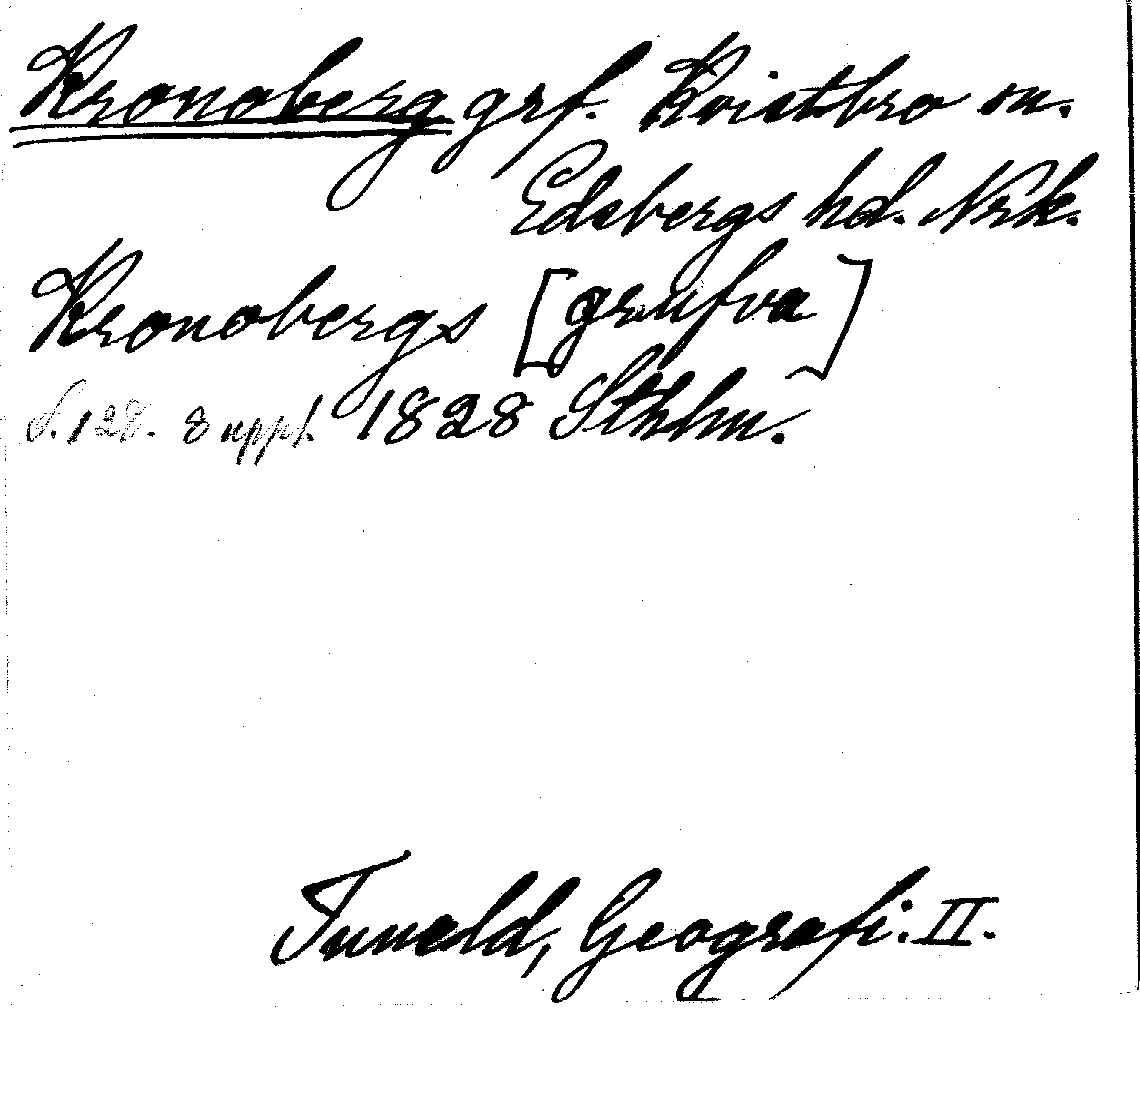 Kronoberg grf. Kvistbro sn.
Edsbergs hd. Nrk.
Kronobergs [grufva]
s. 128. 8 uppl. 1828 Sthlm.
Tuneld, Geografi. II.